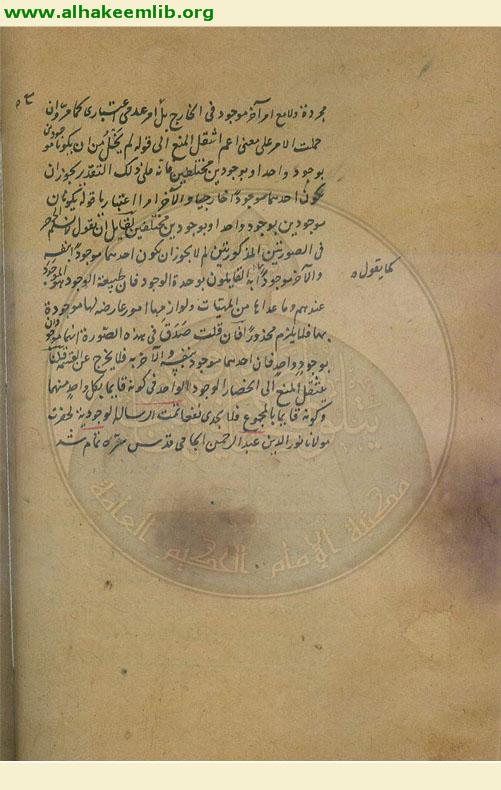 www.alhakeemlib.org
مجردة ولا مع امر آخر موجود فى الخارج بل امر عدمى اعتبارى كما مر وان
حملت الامر على معنى اعم انتقل المنع الى قوله لم يخل من ان يكونا موجودين
بوجود واحد او بوجودين مختلطين فانه على ذلك التقدير يجوز ان
يكون احدهما موجودا خارجيا والآخر امرا اعتباريا قوله يكونان
موجودين بوجود واحد او بوجودين مختلفين لقايل ان يقول
فى الصورتين المذكورتين لم لا يجوز ان يكون احدهما موجودا بنفسه
والآخر موجودا به القايلون بوحدة الوجود فان طبيعة الوجود
كما يقول
عندهم وما عداها من المهيات ولوازمها امور عارضة لها موجودة
بها فلا يلزم محذور فان قلت صدق فى هذه الصورة انهما موجودان
بوجود واحد فان احدهما موجود بنفسه والآخر به فلا يخرج عن القسمين
ينتقل المنع الى انحصار الوجود الواحد فى كونه قايما بكل واحد منهما
وكونه قايما بالمجموع فلا يجدى نفعا تمت الرسالة الوجودية لحضرت
مولانا نور الدين عبد الرحمن الجامى قدس سره تمام شد
مكتبة الإمام الحكيم العامة